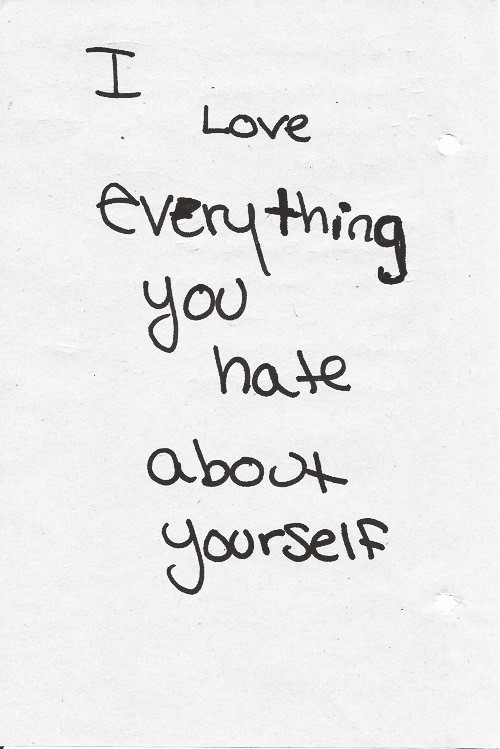 I
Love
everything
you
hate
about
yourself